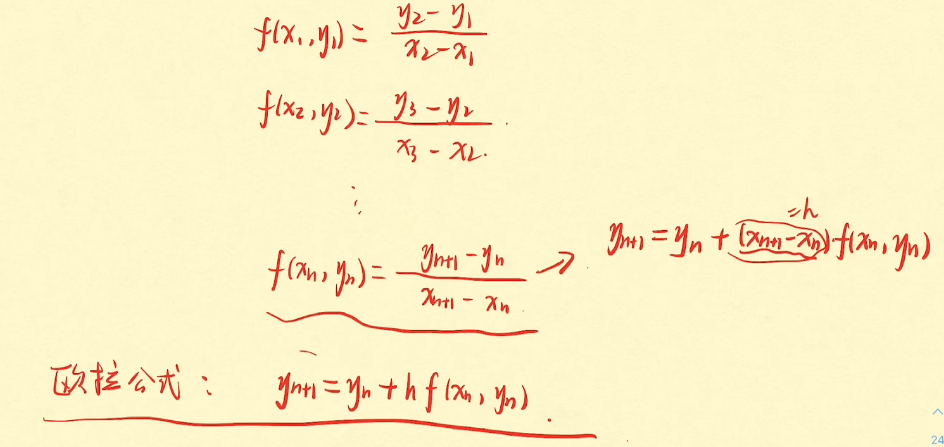 f(x₁,y₁) = (y₂ - y₁)/(x₂ - x₁)
f(x₂,y₂) = (y₃ - y₂)/(x₃ - x₂).
⋮
f(xₙ,yₙ) = (yₙ₊₁ - yₙ)/(xₙ₊₁ - xₙ) → yₙ₊₁ = yₙ + (xₙ₊₁ - xₙ)·f(xₙ,yₙ)
=h
欧拉公式: yₙ₊₁ = yₙ + h f(xₙ,yₙ).
24